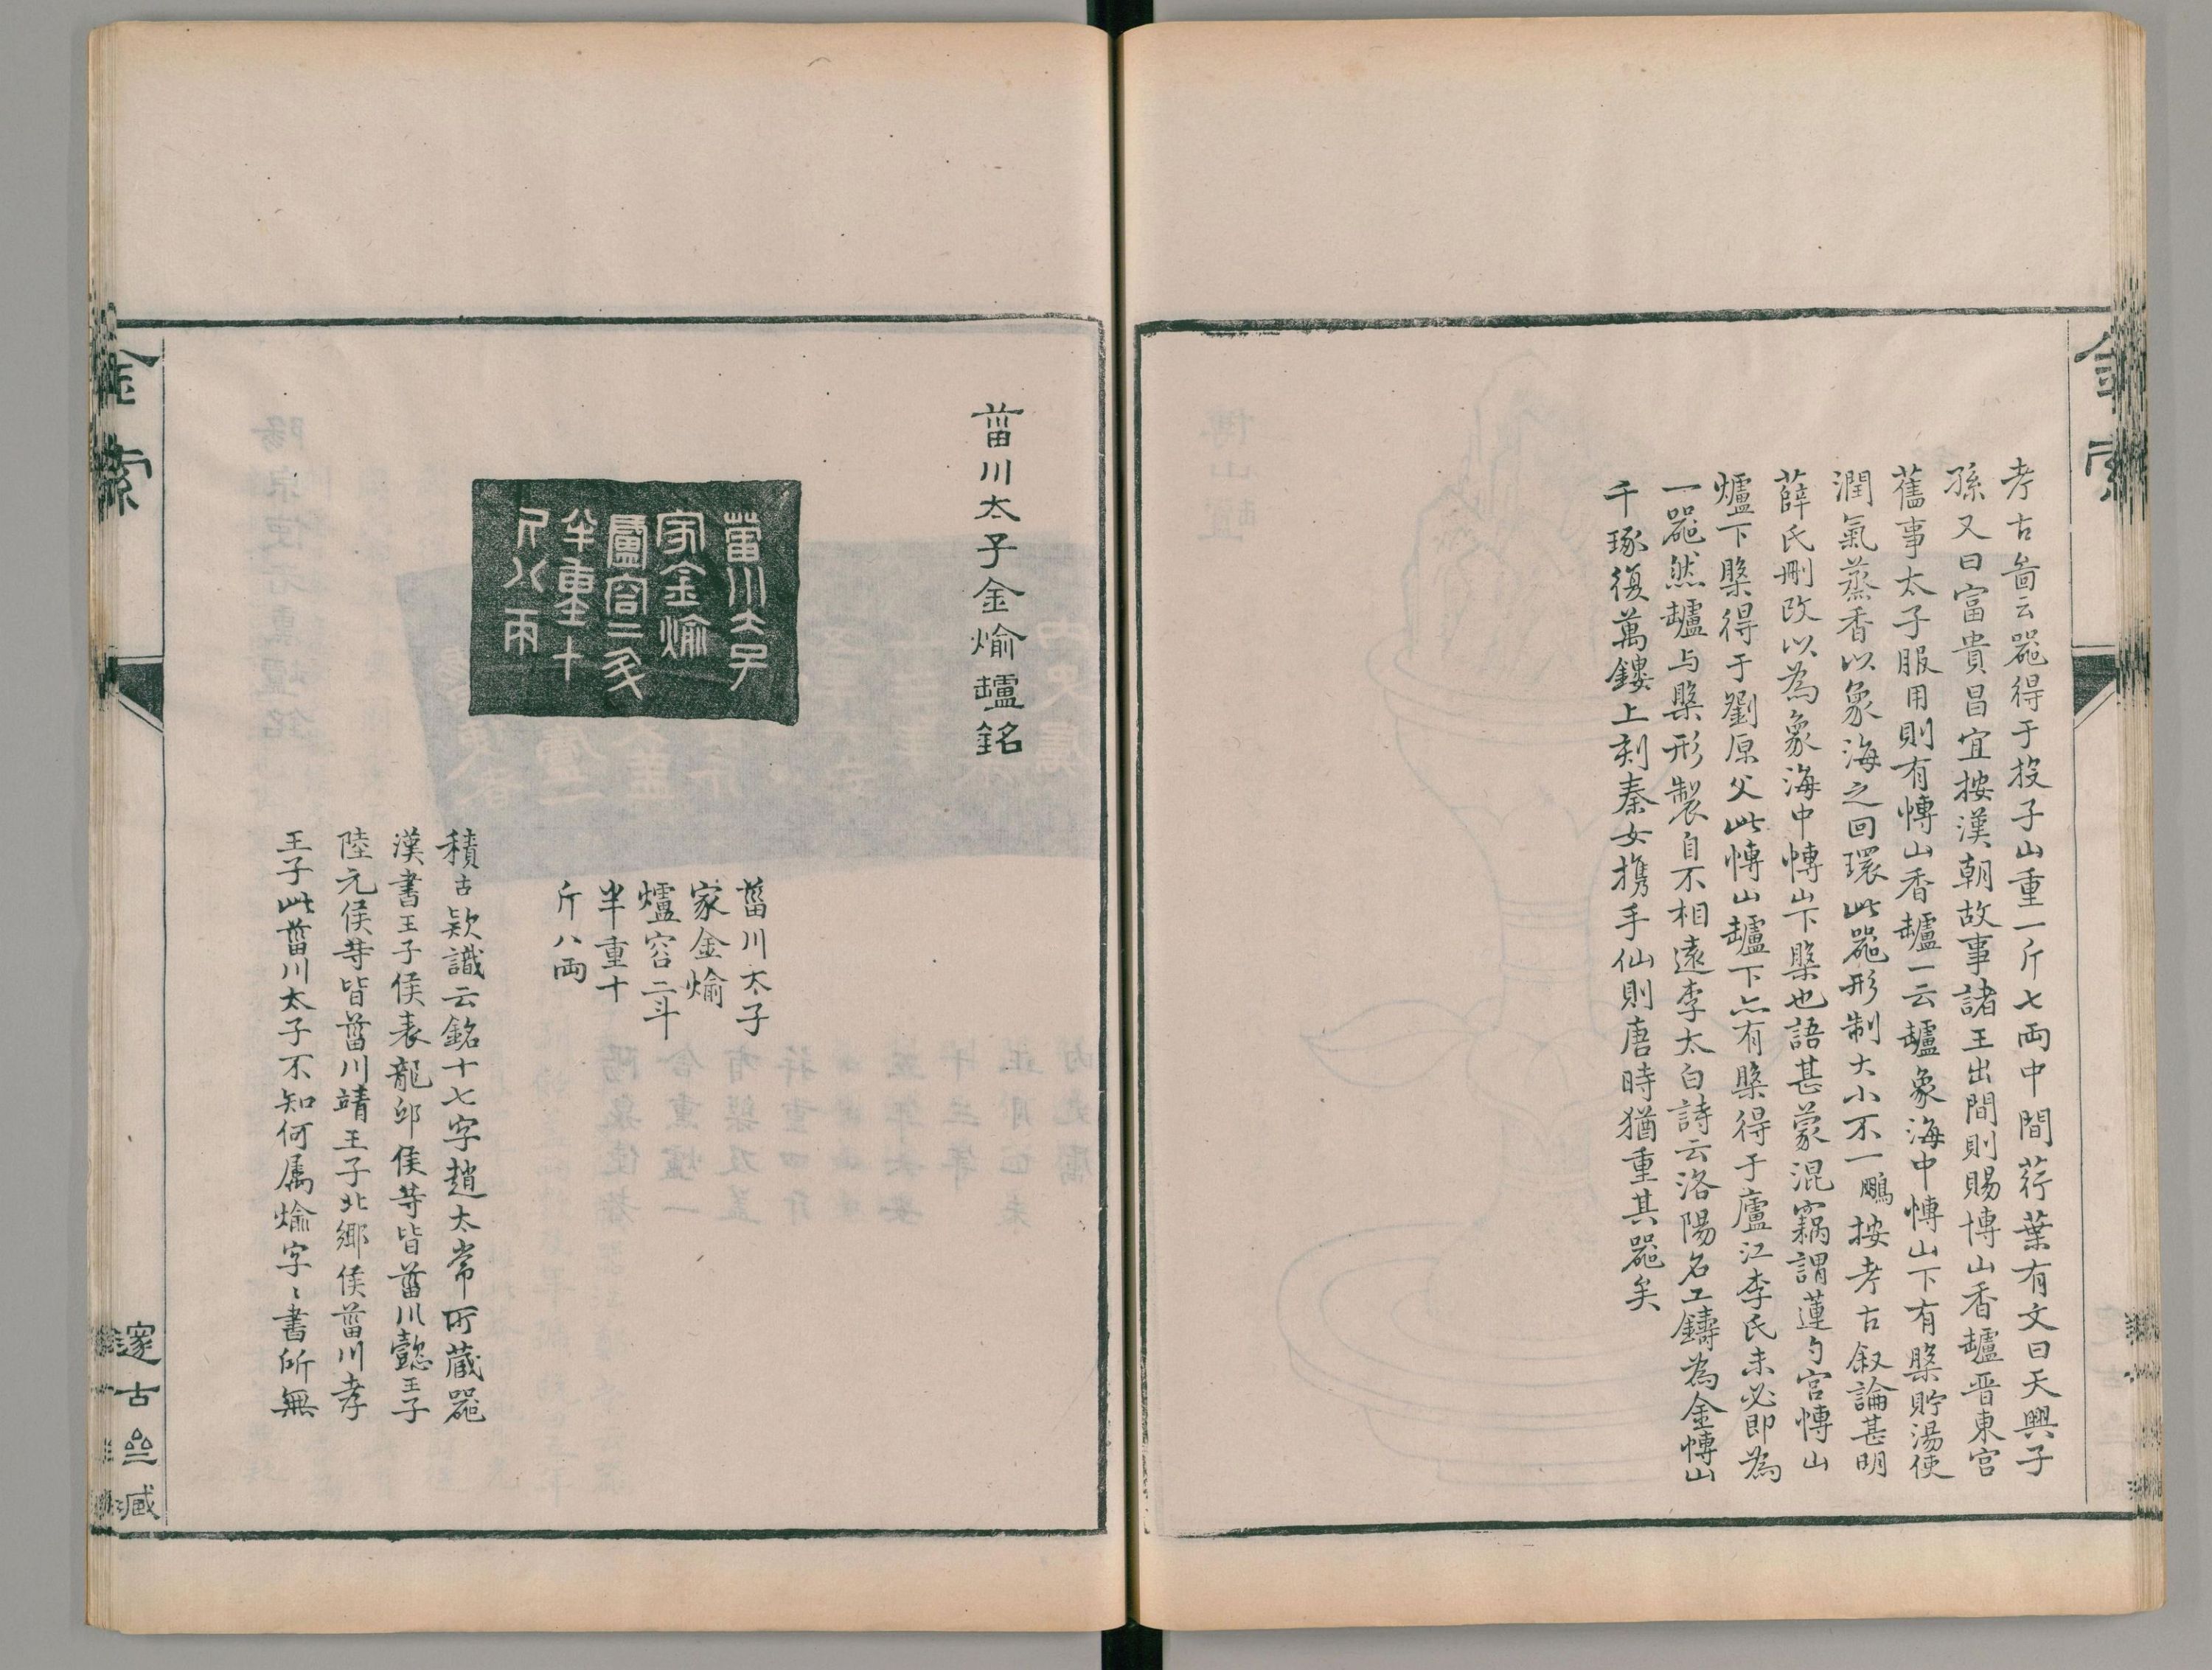 金索
考古啚云噐得于投子山重一斤七両中間荇葉有文曰天興子
孫又曰富貴昌宜按漢朝故事諸王出閤則賜博山香罏晋東宫
舊事太子服用則有博山香罏一云罏象海中博山下有槃貯湯使
潤氣蒸香以象海之回環此噐形制大小不一鵬按考古叙論甚明
薛氏刪改以為象海中博山下槃也語甚蒙混竊謂蓮勺宫博山
爐下槃得于劉原父此博山罏下亦有槃得于廬江李氏未必即為
一噐然罏与槃形製自不相遠李太白詩云洛陽名工鑄為金博山
千琢復萬鏤上刻秦女携手仙則唐時猶重其噐矣
菑川太子金㷍罏銘
菑川太子
家金㷍
盧容二斗
半重十
斤八兩
菑川太子
家金㷍
爐容二斗
半重十
斤八両
積古欵識云銘十七字趙太常所蔵噐
漢書王子侯表龍邱侯等皆菑川懿王子
陸元侯等皆菑川靖王子北鄉侯菑川孝
王子此菑川太子不知何属㷍字〻書所無
金索
邃古亝臧